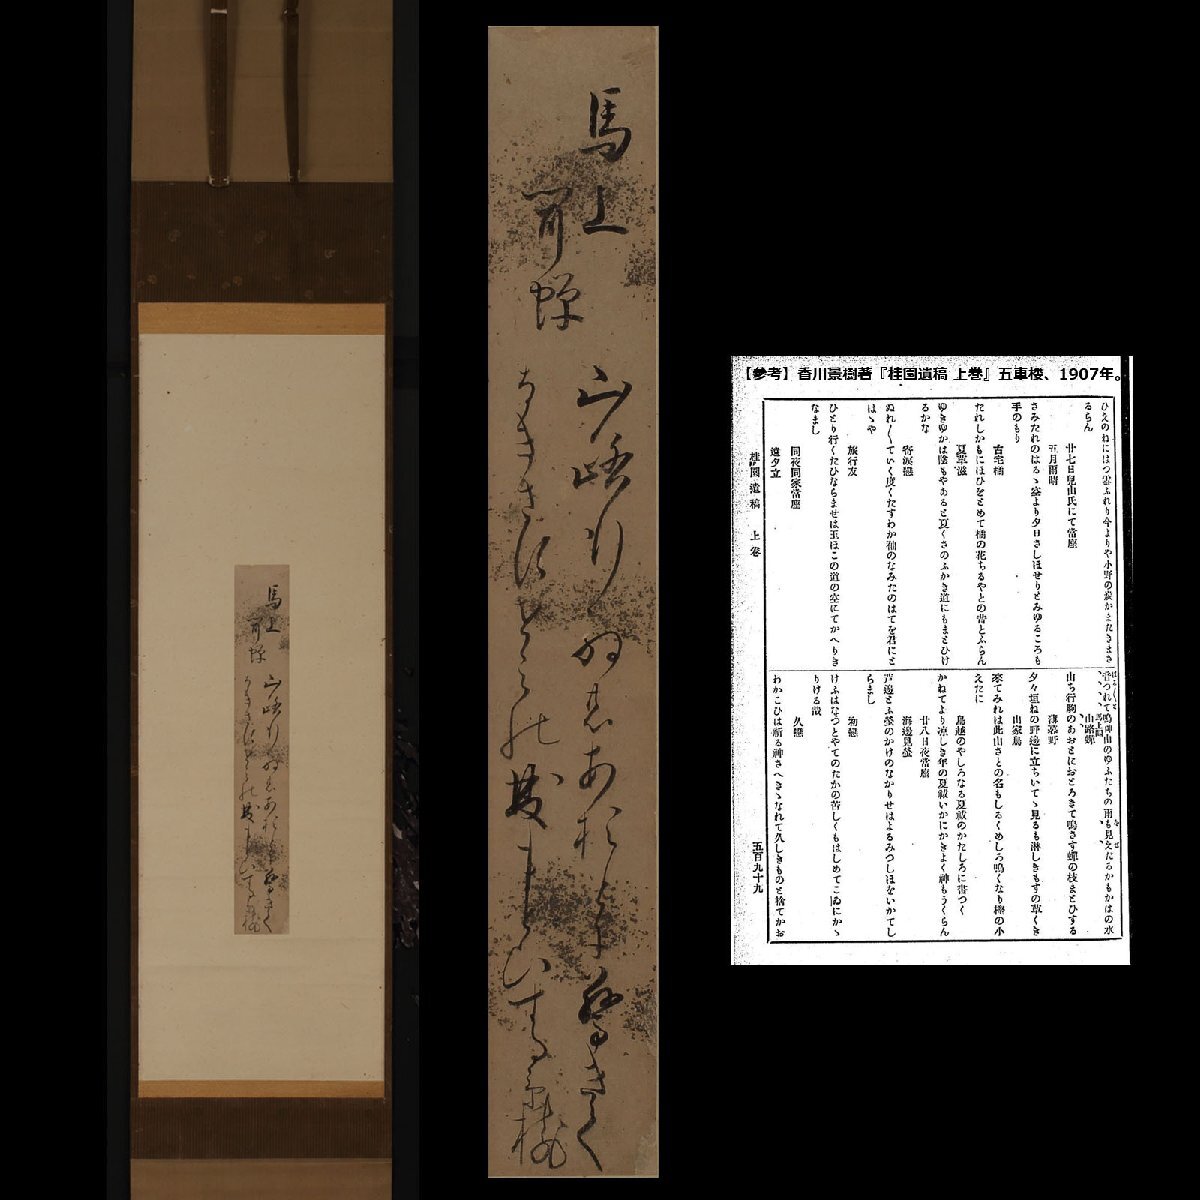 馬上
聞蝉
山路行
あおとに驚きて
まとひする 景樹
【参考】香川景樹著『桂園遺稿 上巻』五車楼、1907年。
るらん
廿七日児山氏にて當座
五月雨晴
さみたれのはるゝ空より夕日さしほせりとみゆるころも
手のもり
古宅橘
たれしかもにほひをとめて橘の花ちるやとの昔とふらん
夏草滋
ゆきゆかは陰もやあると夏くさのふかき道にもまとひけ
るかな
寄涙戀
ぬれ〱ていく度くたすわか袖のなみたのはてを君にと
はゝや
旅行友
ひとり行くたひならませは玉ほこの道の空にてかへりき
なまし
同夜同家當座
遠夕立
山路蝉
山ち行駒のあおとにおとろきて鳴さす蝉の枝まとひする
夕々垣ねの野邊に立ちいてゝ見るも淋しきもすの草くき
山家鳥
來てみれは此山さとの名もしるくめしろ鳴くなり椎の小
えたに
鳥越のやしろなる夏祓のかたしろに書つく
かねてより凉しき年の夏祓いかにかきよく神もうくらん
廿八日夜當座
海邊見螢
芦邊とふ螢のかけのなかりせはよるみつしほをいかてし
らまし
初戀
けふはなつとやてのたかの苦しくもはしめてこゐにかゝ
りける哉
久戀
わかこひは祈る神さへきゝなれて久しきものと捨てかお
桂園遺稿 上巻
五百九十九